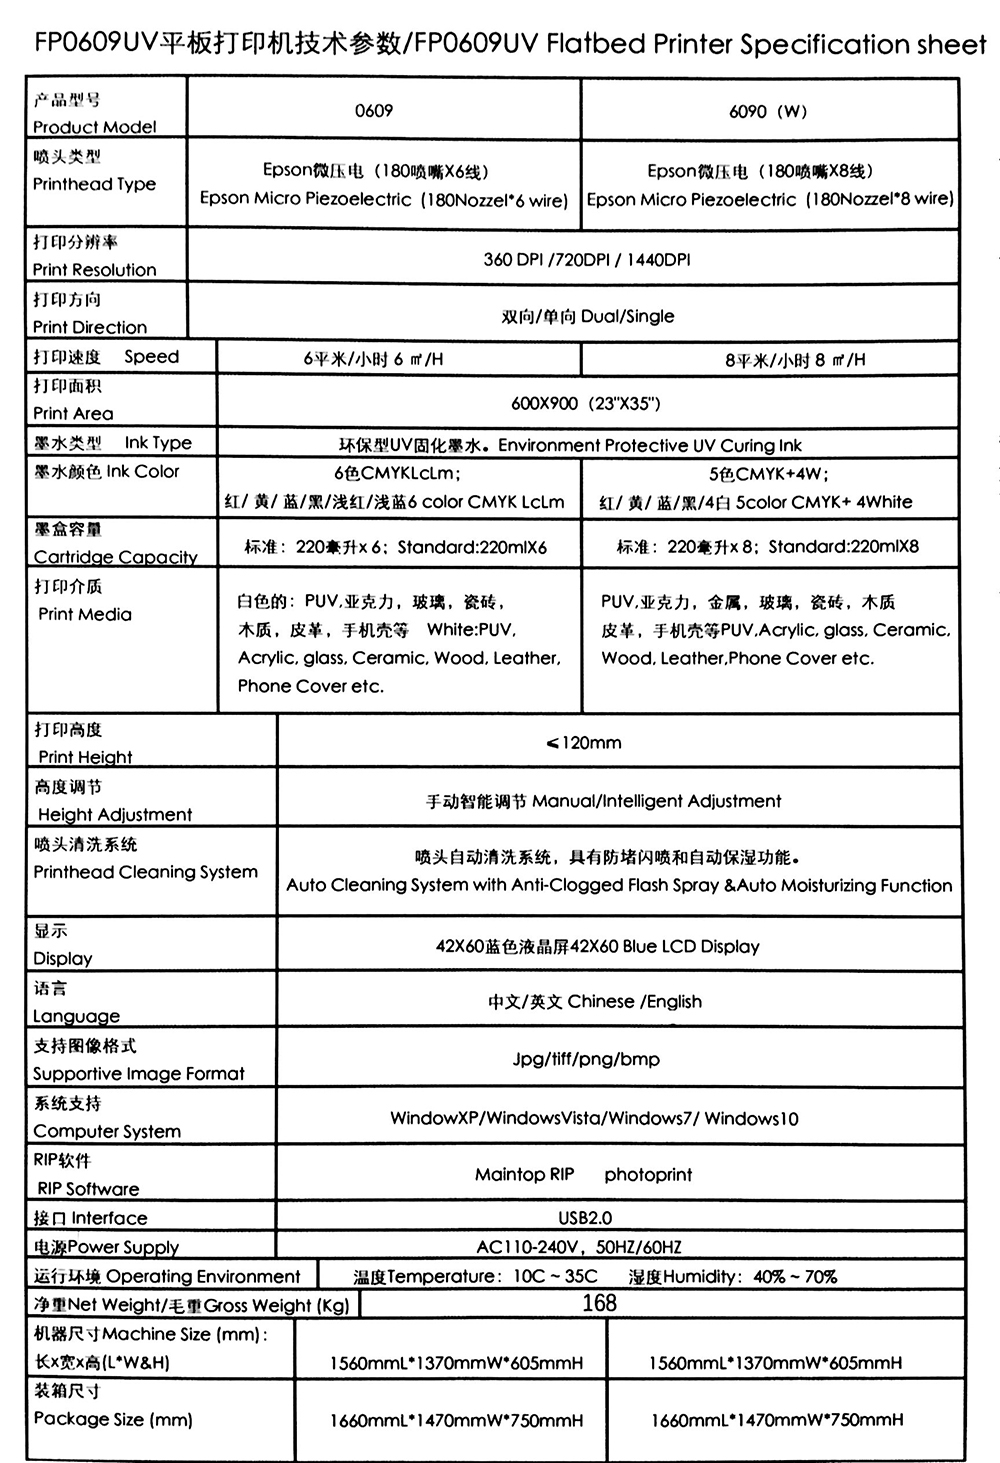 FP0609UV平板打印机技术参数/FP0609UV Flatbed Printer Specification sheet
产品型号
Product Model
0609
6090（W）
喷头类型
Printhead Type
Epson微压电（180喷嘴X6线）
Epson Micro Piezoelectric (180Nozzel*6 wire)
Epson微压电（180喷嘴X8线）
Epson Micro Piezoelectric (180Nozzel*8 wire)
打印分辨率
Print Resolution
360 DPI /720DPI / 1440DPI
打印方向
Print Direction
双向/单向 Dual/Single
打印速度 Speed
6平米/小时 6 ㎡/H
8平米/小时 8 ㎡/H
打印面积
Print Area
600X900（23"X35"）
墨水类型 Ink Type
环保型UV固化墨水。Environment Protective UV Curing Ink
墨水颜色 Ink Color
6色CMYKLcLm；
红/ 黄/ 蓝/黑/浅红/浅蓝6 color CMYK LcLm
5色CMYK+4W；
红/ 黄/ 蓝/黑/4白 5color CMYK+ 4White
墨盒容量
Cartridge Capacity
标准：220毫升x 6；Standard:220mlX6
标准：220毫升x 8；Standard:220mlX8
打印介质
Print Media
白色的：PUV,亚克力，玻璃，瓷砖，
木质，皮革，手机壳等 White:PUV,
Acrylic, glass, Ceramic, Wood, Leather,
Phone Cover etc.
PUV,亚克力，金属，玻璃，瓷砖，木质
皮革，手机壳等PUV,Acrylic, glass, Ceramic,
Wood, Leather,Phone Cover etc.
打印高度
Print Height
≤120mm
高度调节
Height Adjustment
手动智能调节 Manual/Intelligent Adjustment
喷头清洗系统
Printhead Cleaning System
喷头自动清洗系统，具有防堵闪喷和自动保湿功能。
Auto Cleaning System with Anti-Clogged Flash Spray &Auto Moisturizing Function
显示
Display
42X60蓝色液晶屏42X60 Blue LCD Display
语言
Language
中文/英文 Chinese /English
支持图像格式
Supportive Image Format
Jpg/tiff/png/bmp
系统支持
Computer System
WindowXP/WindowsVista/Windows7/ Windows10
RIP软件
RIP Software
Maintop RIP photoprint
接口 Interface
USB2.0
电源Power Supply
AC110-240V，50HZ/60HZ
运行环境 Operating Environment
温度Temperature：10C ~ 35C 湿度Humidity：40% ~ 70%
净重Net Weight/毛重Gross Weight (Kg)
168
机器尺寸Machine Size (mm)：
长x宽x高(L*W&H)
1560mmL*1370mmW*605mmH
1560mmL*1370mmW*605mmH
装箱尺寸
Package Size (mm)
1660mmL*1470mmW*750mmH
1660mmL*1470mmW*750mmH